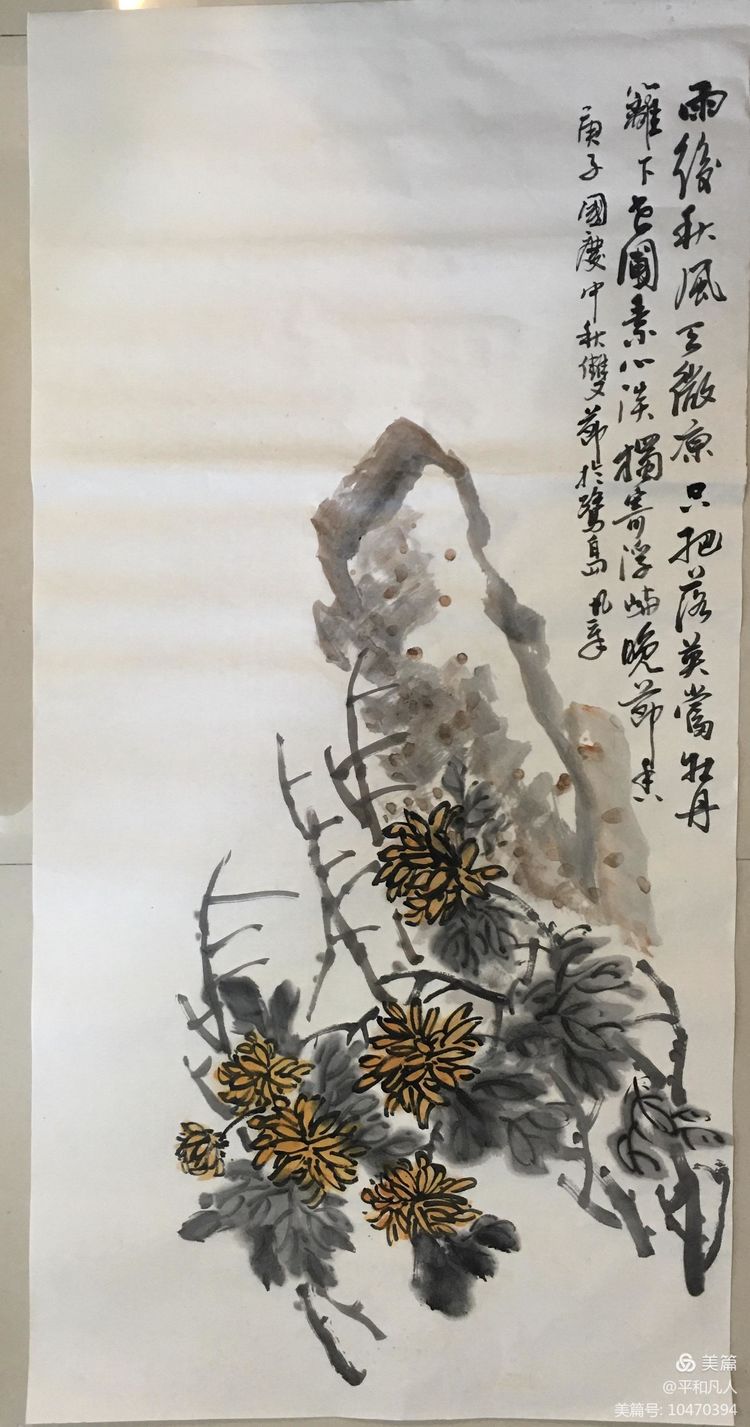 雨後秋風天微凉只把落英當牡丹
籬下老圃素心淡獨寄浮嶼晚節香
庚子國慶中秋雙節於鷺島凡
美篇
@平和凡人
美篇号: 10470394